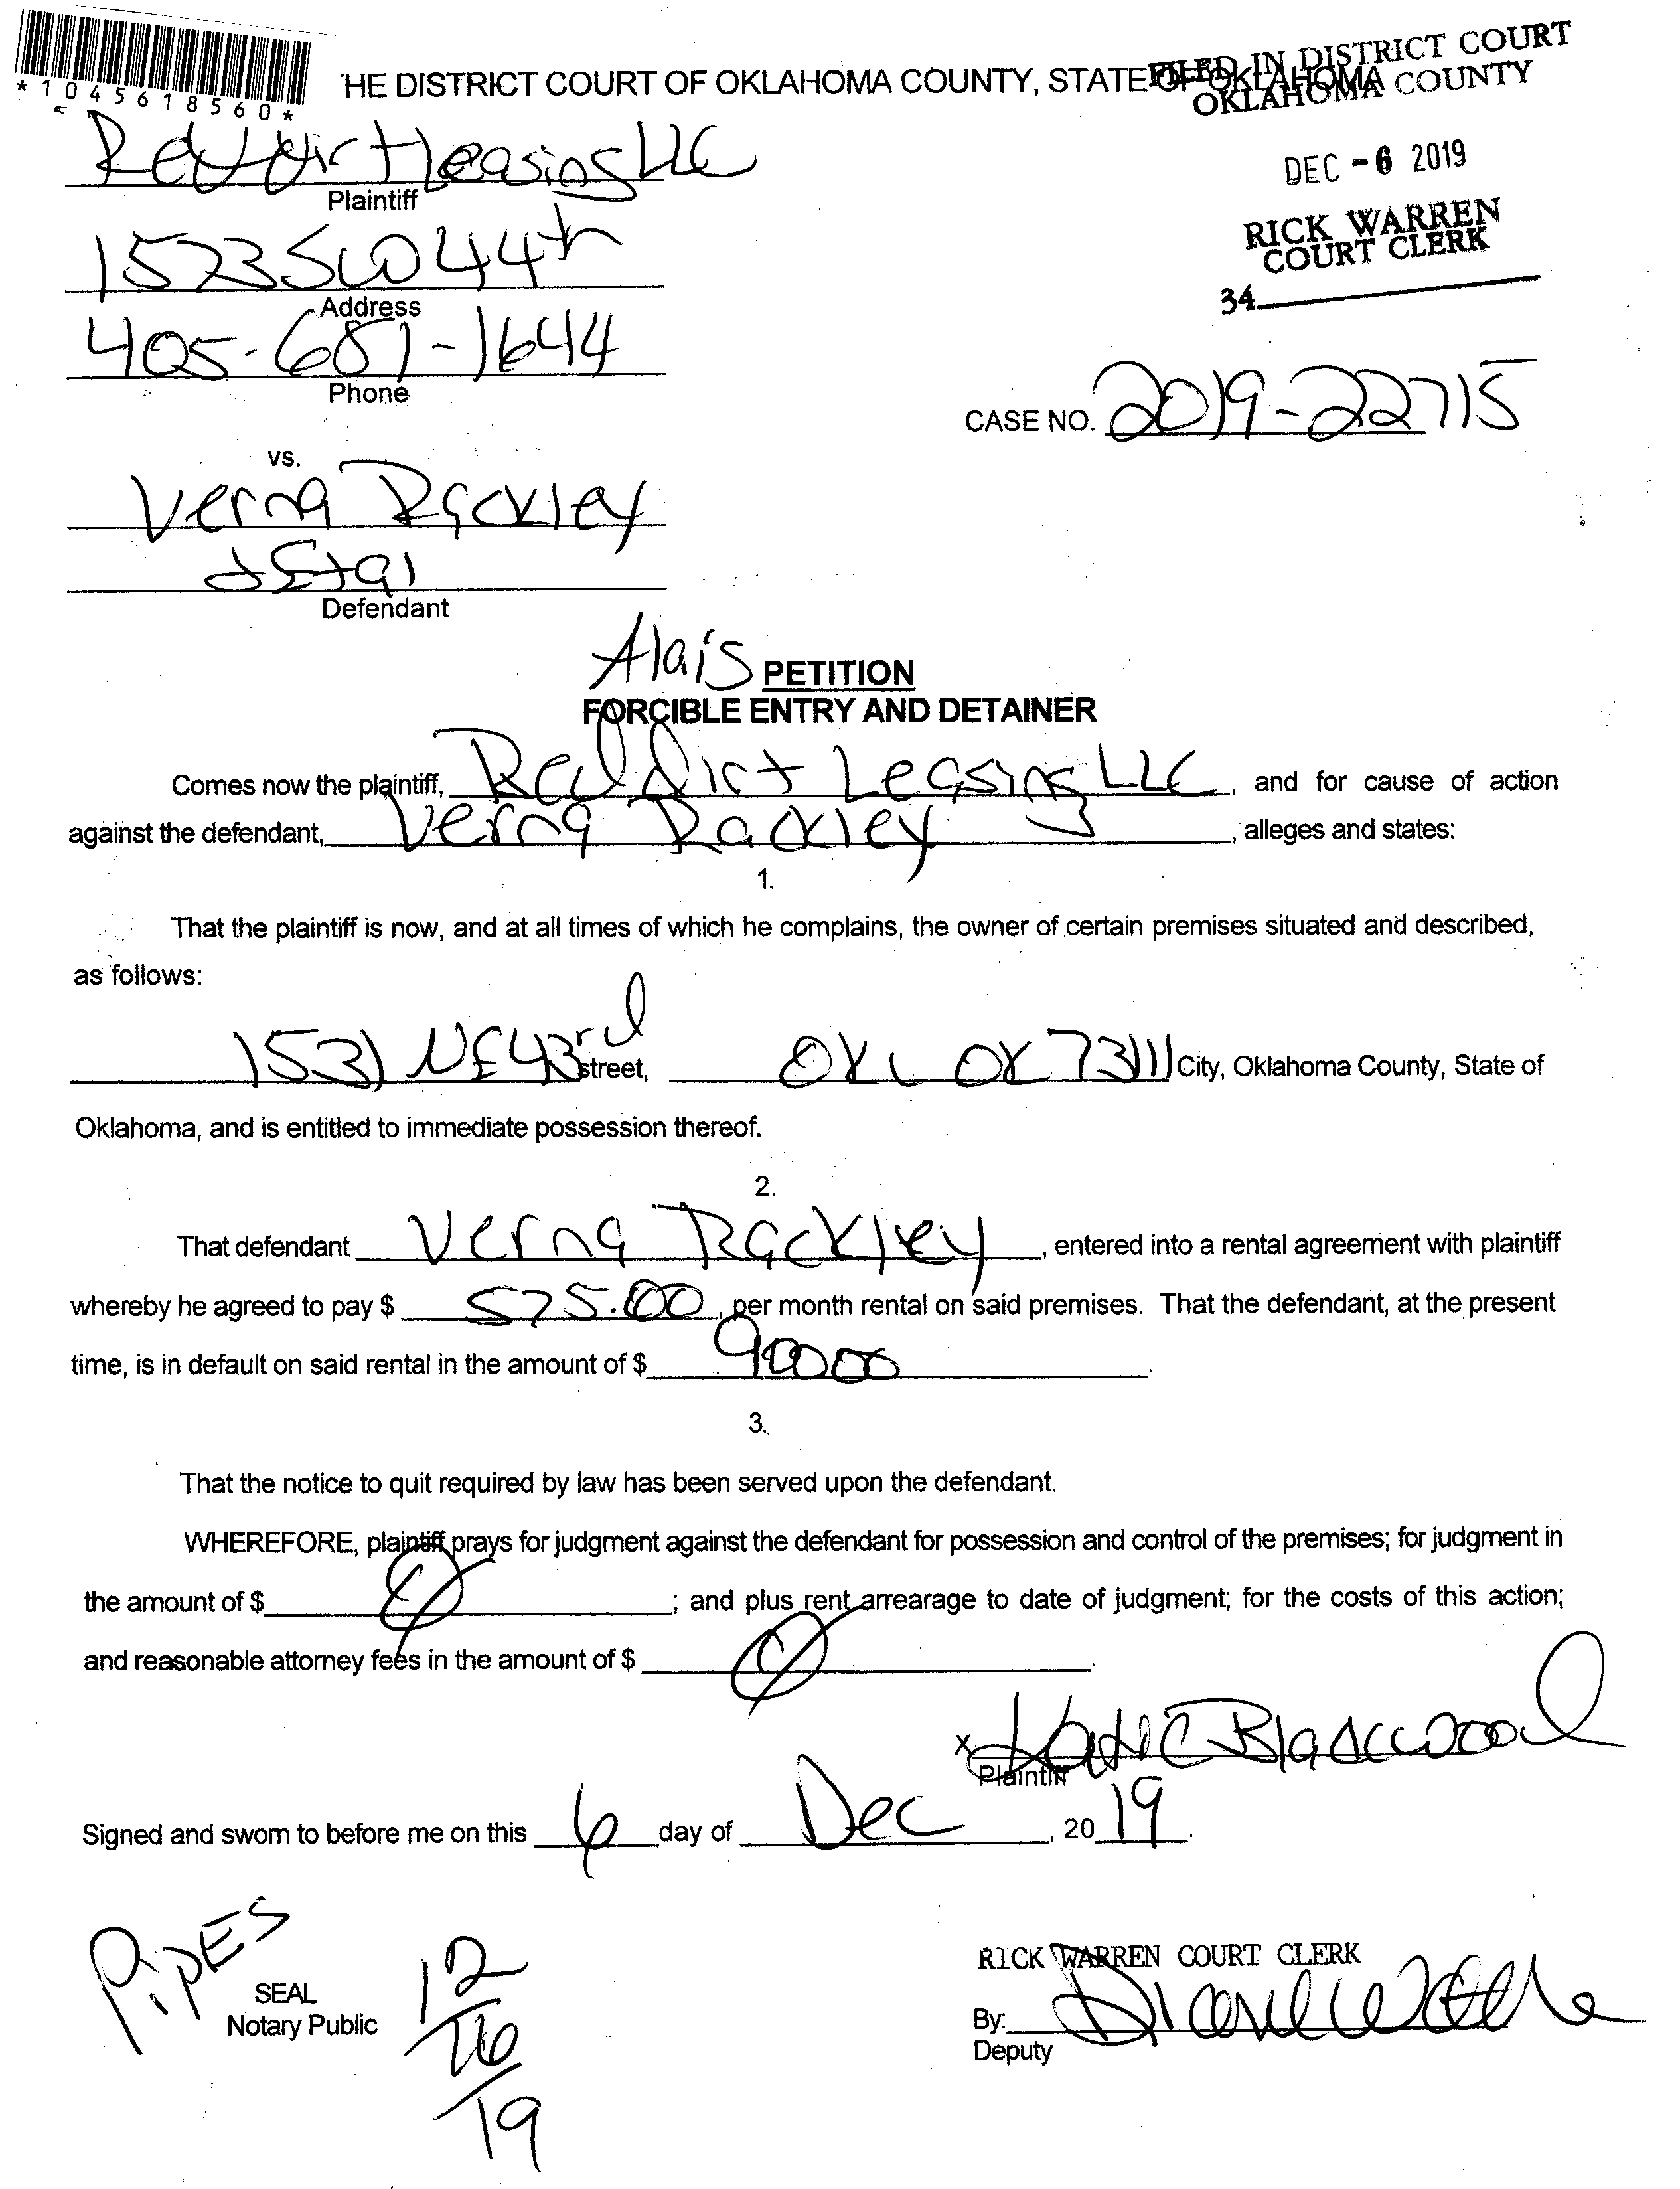 *1045618560*
HE DISTRICT COURT OF OKLAHOMA COUNTY, STATE OF OKLAHOMA
FILED IN DISTRICT COURT
OKLAHOMA COUNTY
DEC -6 2019
RICK WARREN
COURT CLERK
34
Red dirt Leasing LLC
Plaintiff
1573 SW 44th
Address
405-681-1644
Phone
CASE NO. 2019-22715
vs.
Verna Rackley
Etal
Defendant
Alais PETITION
FORCIBLE ENTRY AND DETAINER
Comes now the plaintiff, Red dirt Leasing LLC, and for cause of action
against the defendant, Verna Rackley, alleges and states:
1.
That the plaintiff is now, and at all times of which he complains, the owner of certain premises situated and described,
as follows:
1531 NE 43rd street, OKC OK 73111 City, Oklahoma County, State of
Oklahoma, and is entitled to immediate possession thereof.
2.
That defendant Verna Rackley, entered into a rental agreement with plaintiff
whereby he agreed to pay $ 575.00, per month rental on said premises. That the defendant, at the present
time, is in default on said rental in the amount of $ 90000.
3.
That the notice to quit required by law has been served upon the defendant.
WHEREFORE, plaintiff prays for judgment against the defendant for possession and control of the premises; for judgment in
the amount of $ ; and plus rent arrearage to date of judgment; for the costs of this action;
and reasonable attorney fees in the amount of $ .
X Katie Blackwood
Plaintiff
Signed and sworn to before me on this 6 day of Dec, 2019.
PipES
SEAL
Notary Public
12/16/19
RICK WARREN COURT CLERK
By:
Deputy